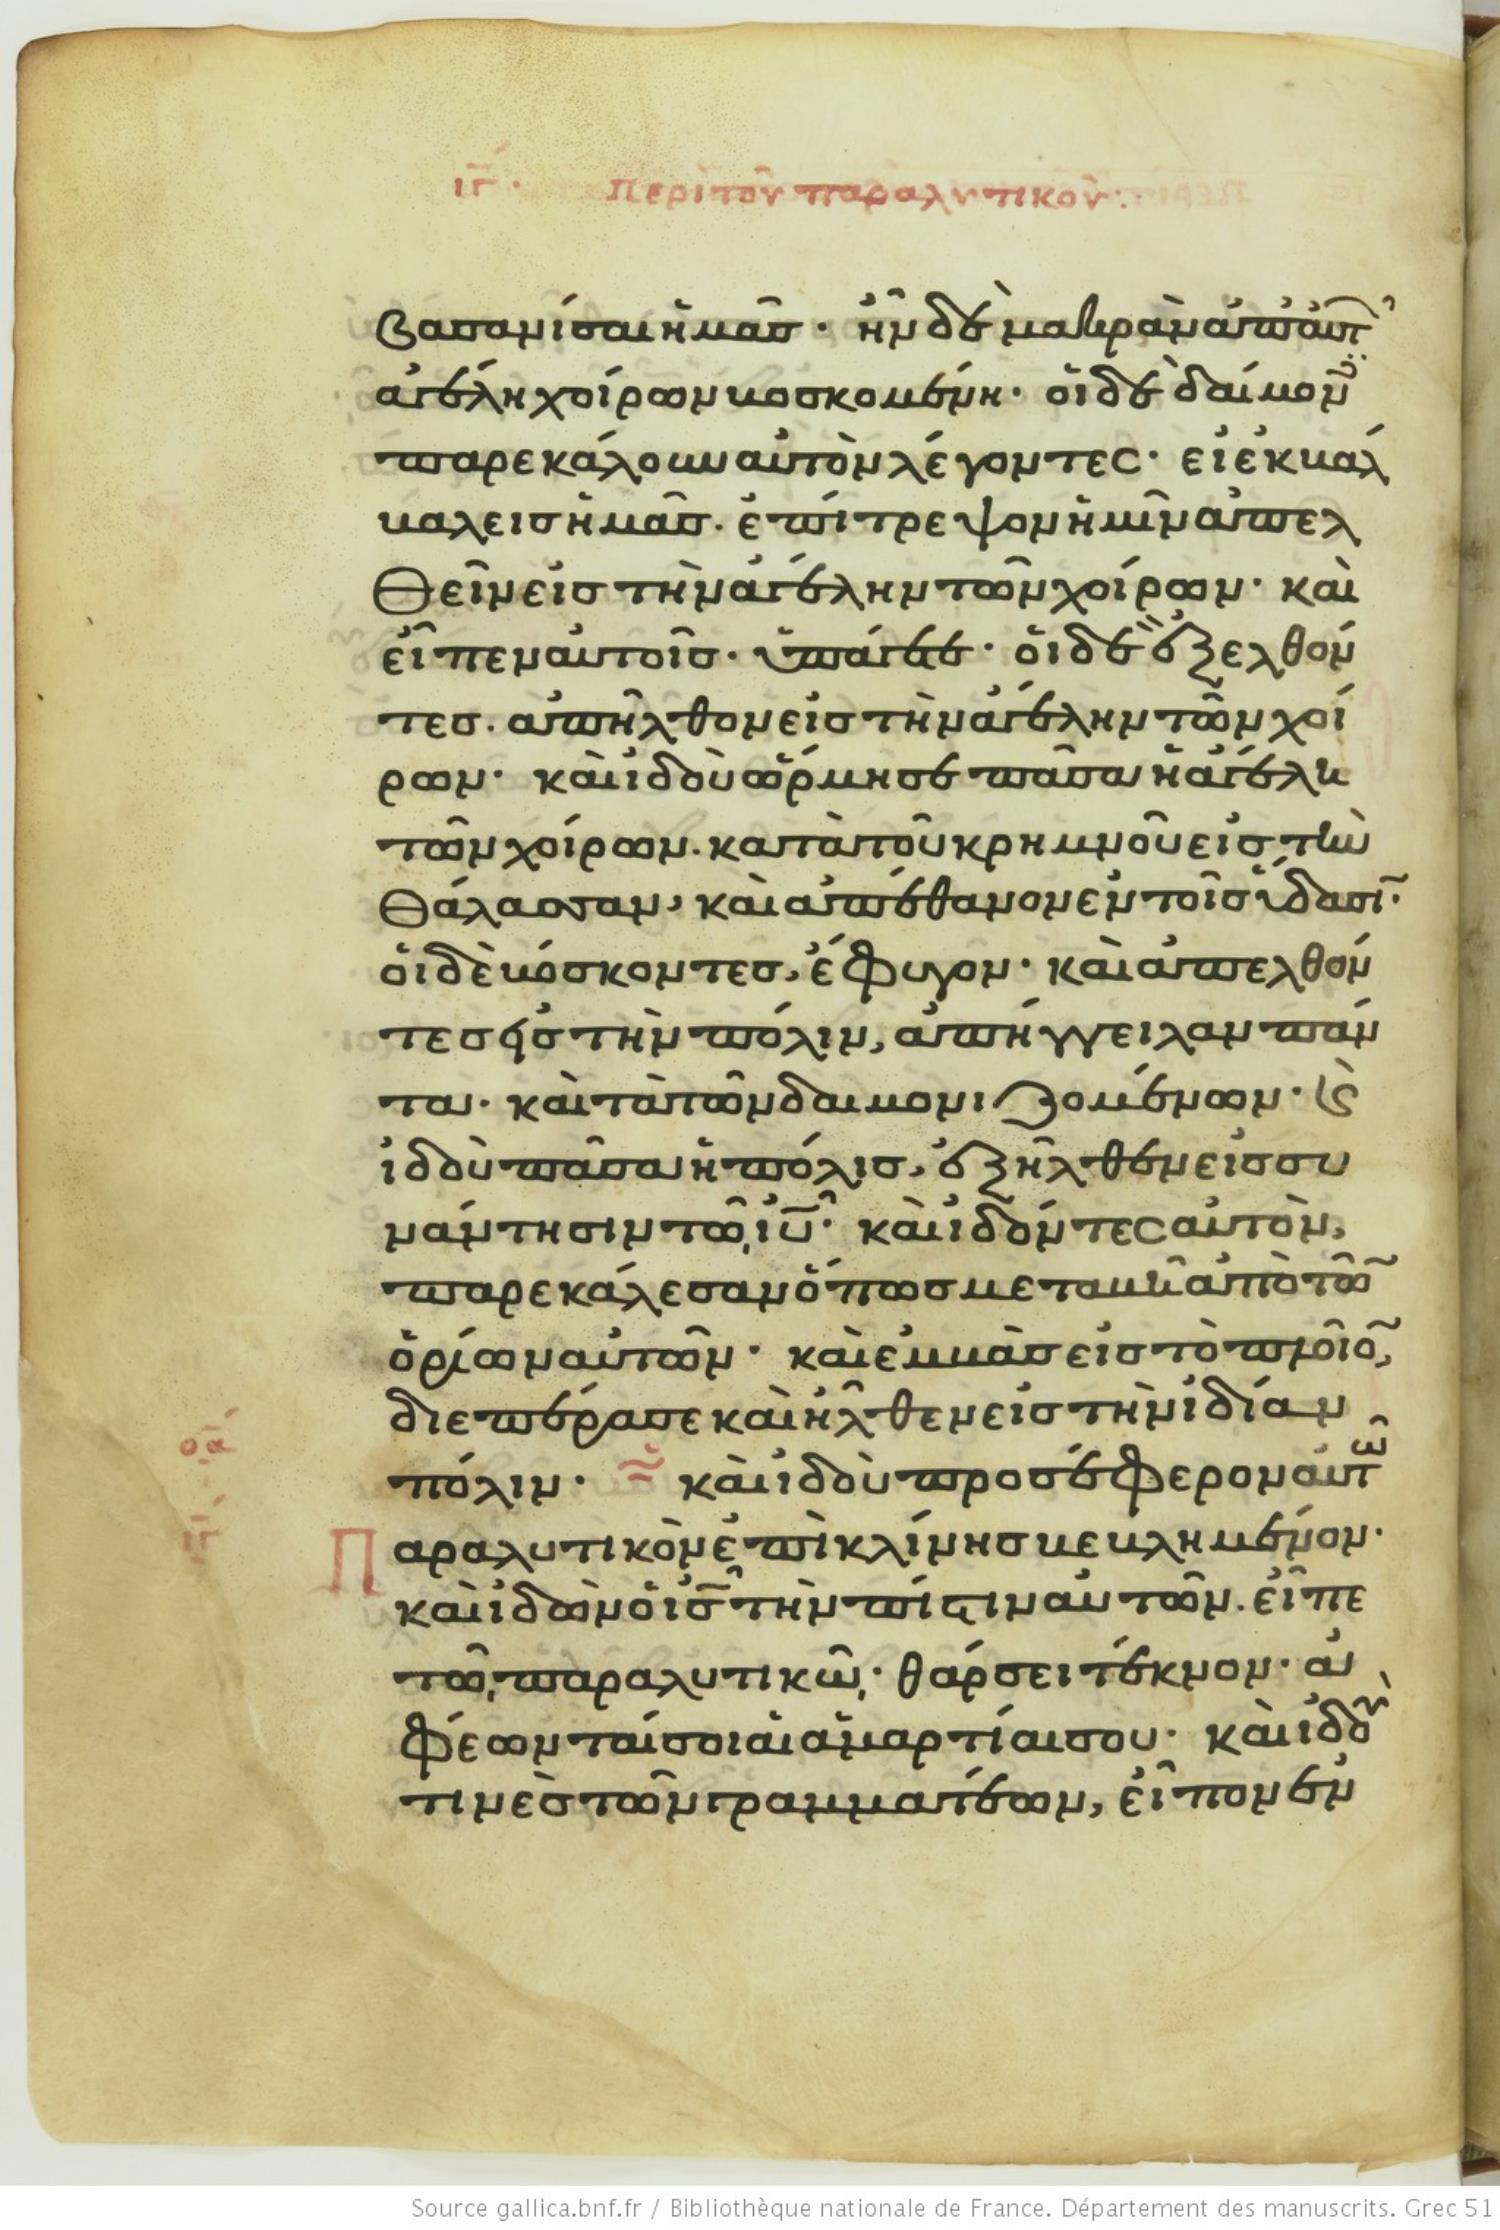 ιγ· Περὶ τοῦ παραλυτικοῦ:·
βασανίσαι ἡμᾶς· ἦν δὲ μακρὰν ἀπ' αὐτ
ἀγέλη χοίρων βοσκομένη· οἱ δὲ δαίμον
παρεκάλουν αὐτὸν λέγοντες· εἰ ἐκβάλ
βαλεις ἡμᾶς· ἐπίτρεψον ἡμῖν ἀπελ
θεῖν εἰς τὴν ἀγέλην τῶν χοίρων· καὶ
εἶπεν αὐτοῖς· ὑπάγετε· οἱ δὲ ἐξελθόν
τες· ἀπῆλθον εἰς τὴν ἀγέλην τῶν χοί
ρων· καὶ ἰδοὺ ὥρμησε πᾶσα ἡ ἀγέλη
τῶν χοίρων· κατὰ τοῦ κρημνοῦ εἰς τὴν
θάλασσαν, καὶ ἀπέθανον ἐν τοῖς ὕδασι·
οἱ δὲ βόσκοντες, ἔφυγον· καὶ ἀπελθόν
τες εἰς τὴν πόλιν, ἀπήγγειλαν πάν
τα· καὶ τὰ τῶν δαιμονιζομένων· κ(αὶ)
ἰδοὺ πᾶσα ἡ πόλις, ἐξῆλθεν εἰς συ
νάντησιν τῶ, ιῡ· καὶ ἰδόντες αὐτὸν,
παρεκάλεσαν ὅπως μεταβῆ ἀπὸ τῶ
ὁρίων αὐτῶν· καὶ ἐμβὰς εἰς τὸ πλοῖο,
διεπέρασε καὶ ἦλθεν εἰς τὴν ἰδίαν
πόλιν· καὶ ἰδοὺ προσέφερον αὐτῶ
οᾱ
ιγ
Παραλυτικὸν ἐπὶ κλίνης βεβλημένον·
καὶ ἰδὼν ὁ ις̄ τὴν πίστιν αὐτῶν· εἶπε
τῶ, παραλυτικῶ,· θάρσει τέκνον· ἀ
φέωνταί σοι αἱ ἁμαρτίαι σου· καὶ ἰδοὺ
τινὲς τῶν γραμματέων, εἶπον ἐν